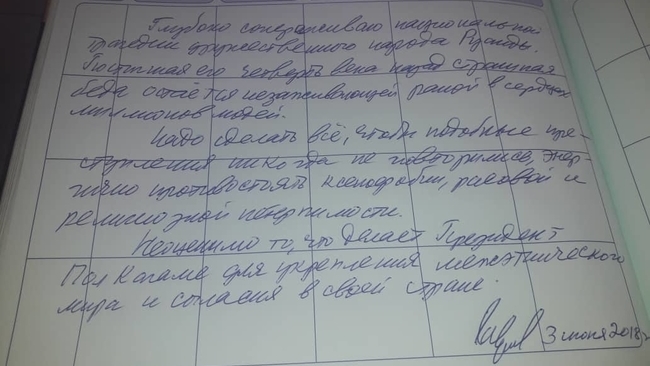 Глубоко сопереживаю национальной
трагедии дружественного народа Руанды.
Постигшая его четверть века назад страшная
беда остаётся незаживающей раной в сердцах
миллионов людей.
Надо сделать всё, чтобы подобные пре-
ступления никогда не повторились, энер-
гично противостоять ксенофобии, расовой и
религиозной нетерпимости.
Неоценимо то, что делает Президент
Пол Кагаме для укрепления межэтнического
мира и согласия в своей стране.
3 июня 2018 г.